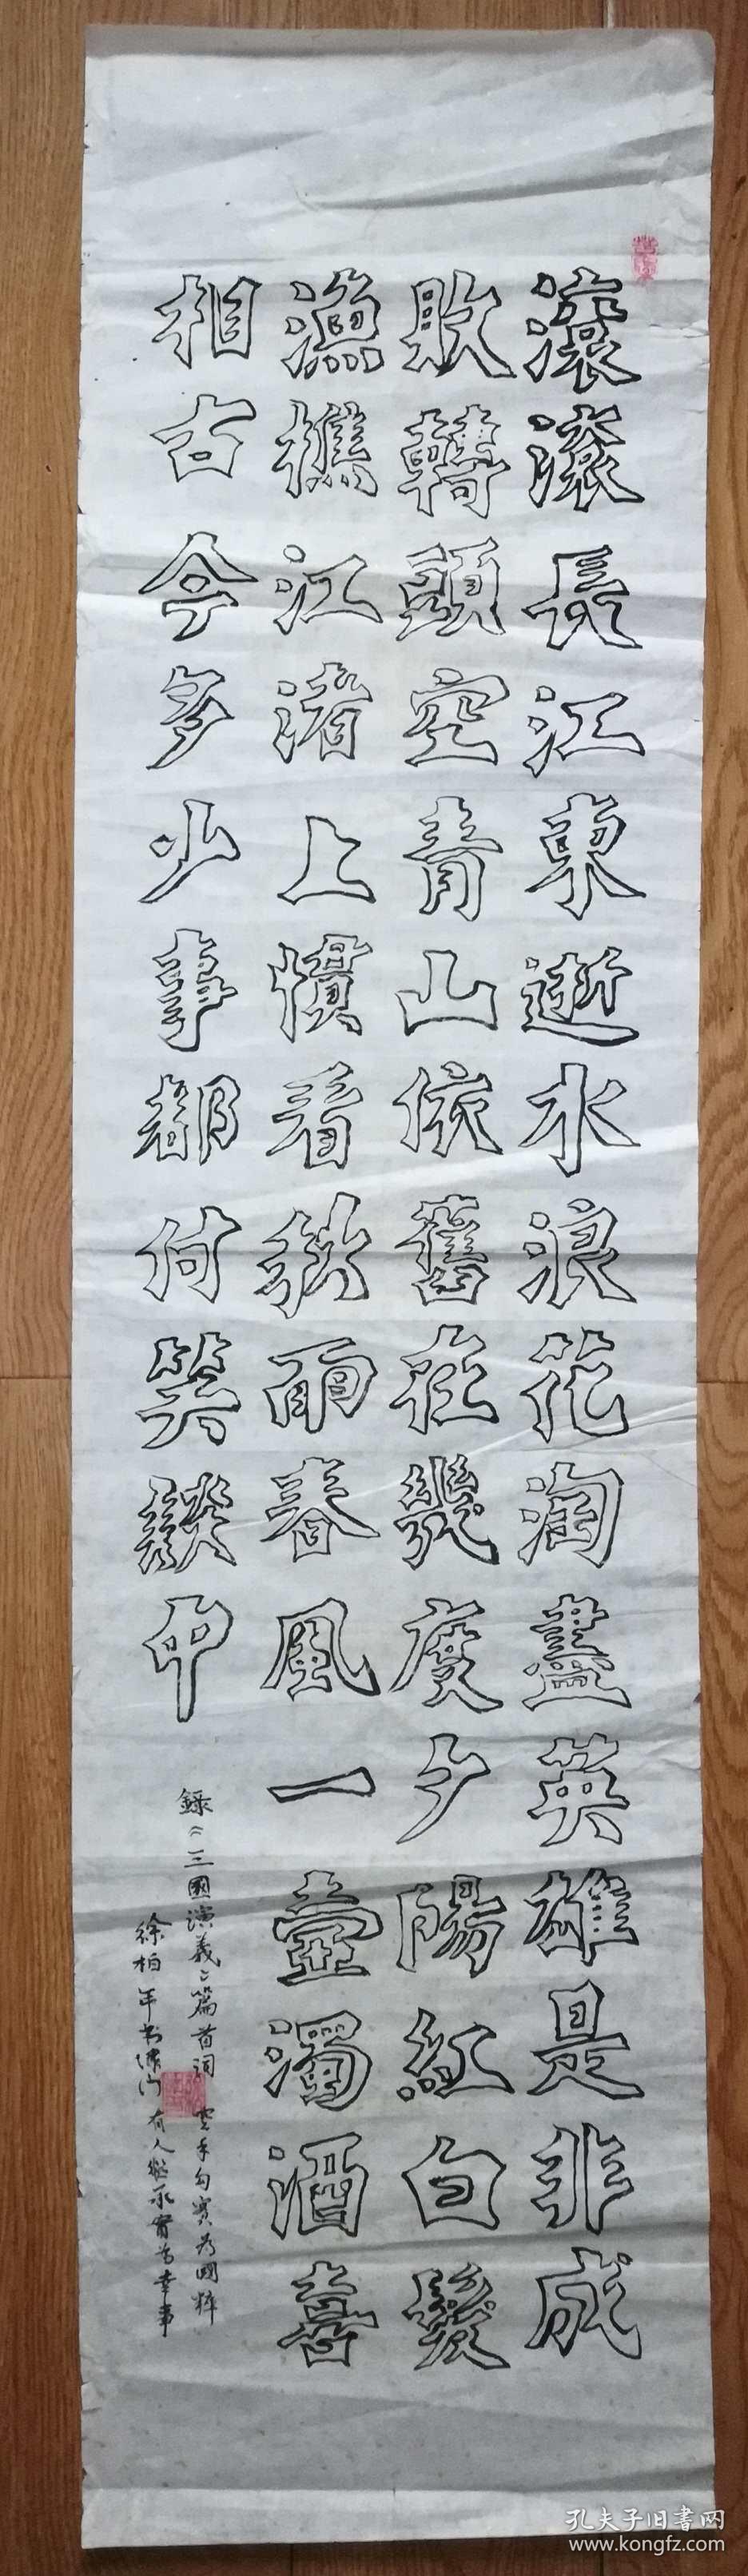 滾滾長江東逝水浪花淘盡英雄是非成
敗轉頭空青山依舊在幾度夕陽紅白髮
漁樵江渚上慣看秋雨春風一壺濁酒喜
相古今多少事都付笑談中
錄《三國演義》篇首詞 空手勾實為國粹
徐柏年書 有人繼承實為幸事
孔夫子旧書网
www.kongfz.com